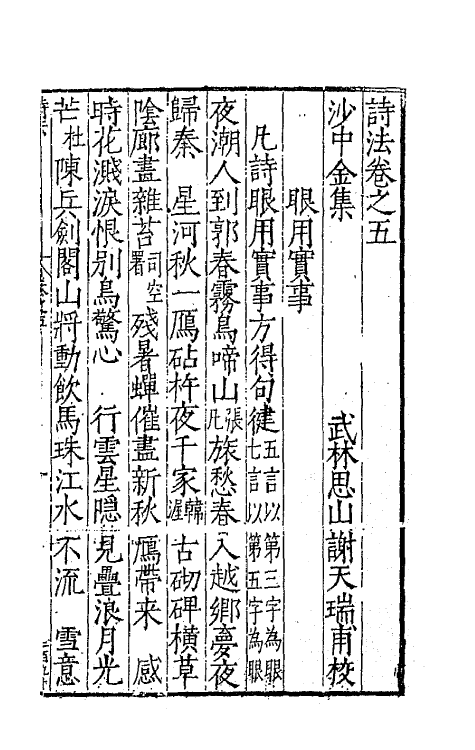 詩法卷之五
沙中金集 武林思山謝天瑞甫校
眼用實事
凡詩眼用實事方得句健五言以第三字為眼七言以第五字為眼
夜潮人到郭春霧鳥啼山張凡旅愁春入越鄉夢夜
歸秦 星河秋一鴈砧杵夜千家韓渥古砌碑橫草
陰廊畫雜苔司空署殘暑蟬催盡新秋鴈帶来 感
時花濺淚恨别鳥驚心 行雲星隱見疊浪月光
芒杜陳兵劍閣山將動飲馬珠江水不流 雪意